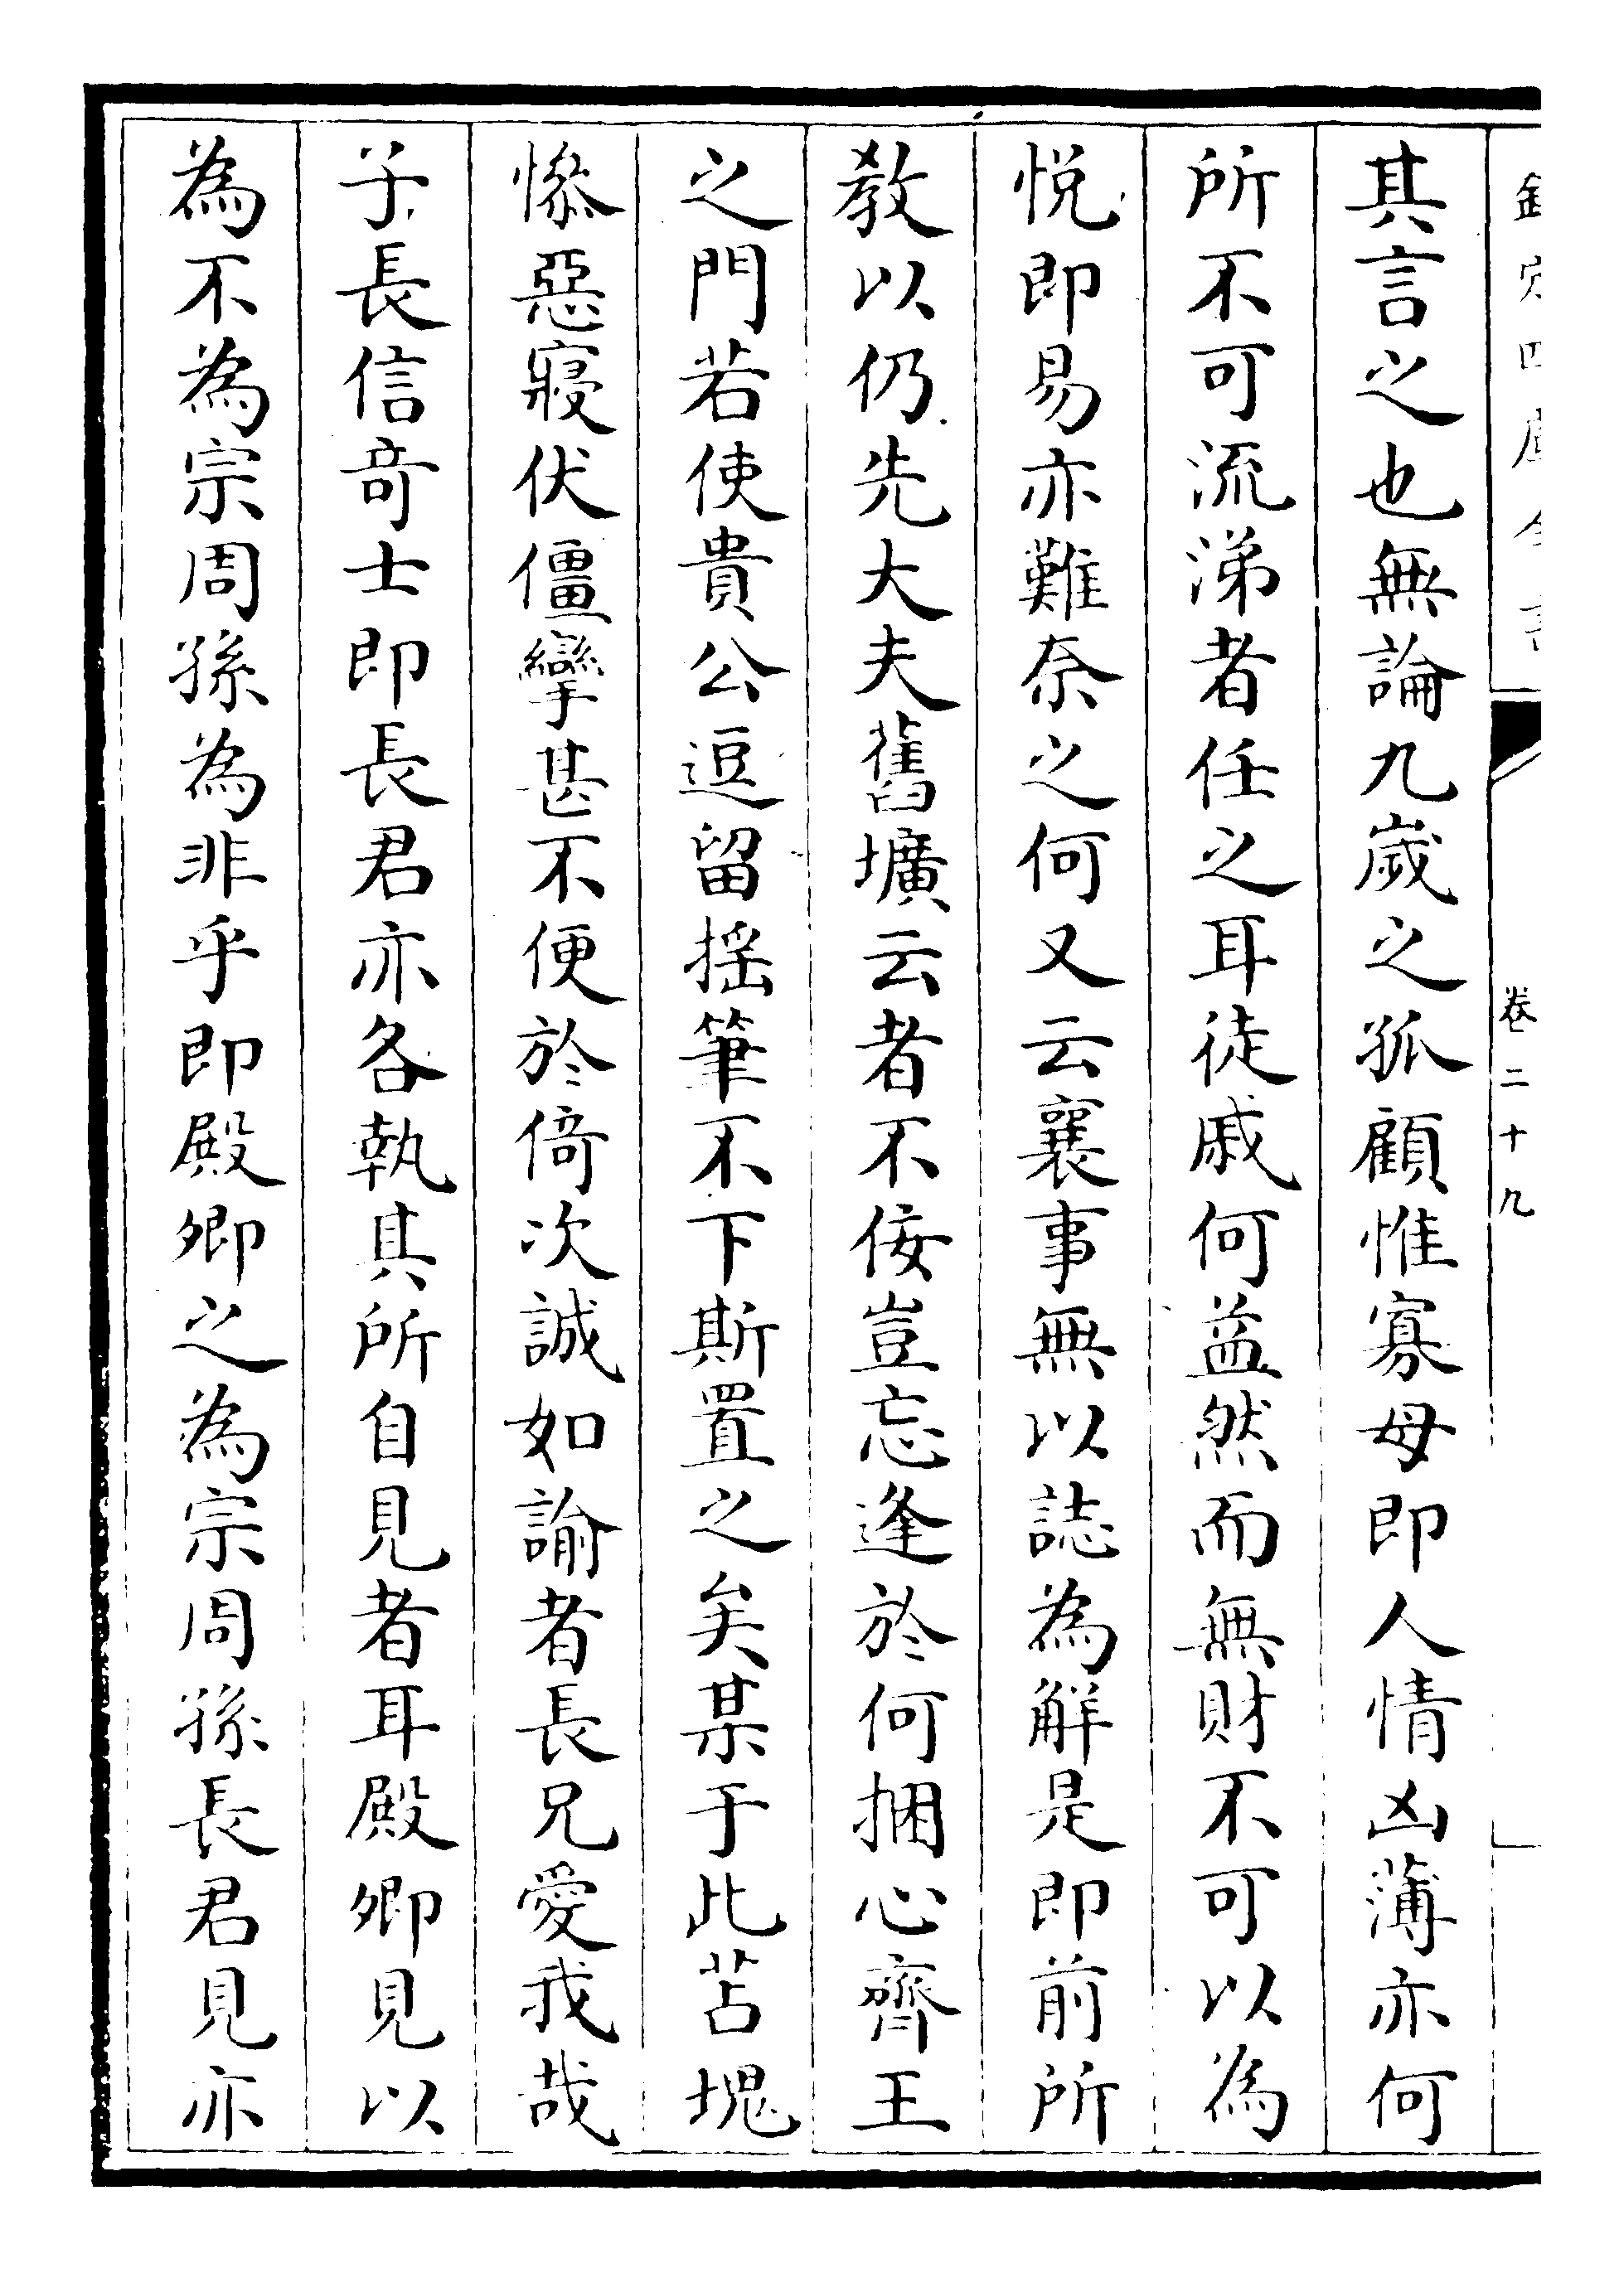 欽定四庫全書
卷二十九
其言之也無論九歲之孤顧惟寡母即人情凶薄亦何
所不可流涕者任之耳徒戚何益然而無財不可以為
悦即易亦難奈之何又云襄事無以誌為解是即前所
教以仍先大夫舊壙云者不佞豈忘逢於何捆心齊王
之門若使貴公逗留揺筆不下斯置之矣某于此苫塊
慘惡寢伏僵攣甚不便於倚次誠如諭者長兄愛我哉
子長信奇士即長君亦各執其所自見者耳殿卿見以
為不為宗周孫為非乎即殿卿之為宗周孫長君見亦